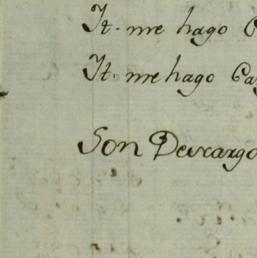 It. me hago
It. me hago
Son Descargo